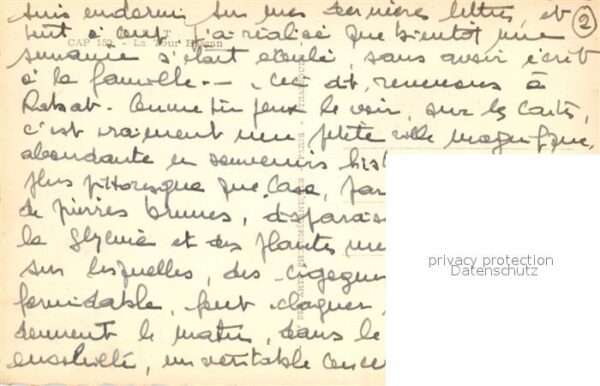 suis endormi sur mes dernières lettres, et
tout à coup j'ai réalisé que bientôt une
semaine s'était écoulé, sans avoir écrit
à la famille. - Ceci dit, revenons à
Rabat. Comme tu peux le voir, sur les cartes,
c'est vraiment une petite ville magnifique,
abondante en souvenirs hist
plus pittoresque que Casa, par
de pierres brunes, disparais
la glycine et des plantes
sur lesquelles, des cigogn
formidable, font claquer,
donnent le matin, dans le
ensoleillé, un véritable conce
2
CAP 162 - La Tour Hassan
privacy protection
Datenschutz